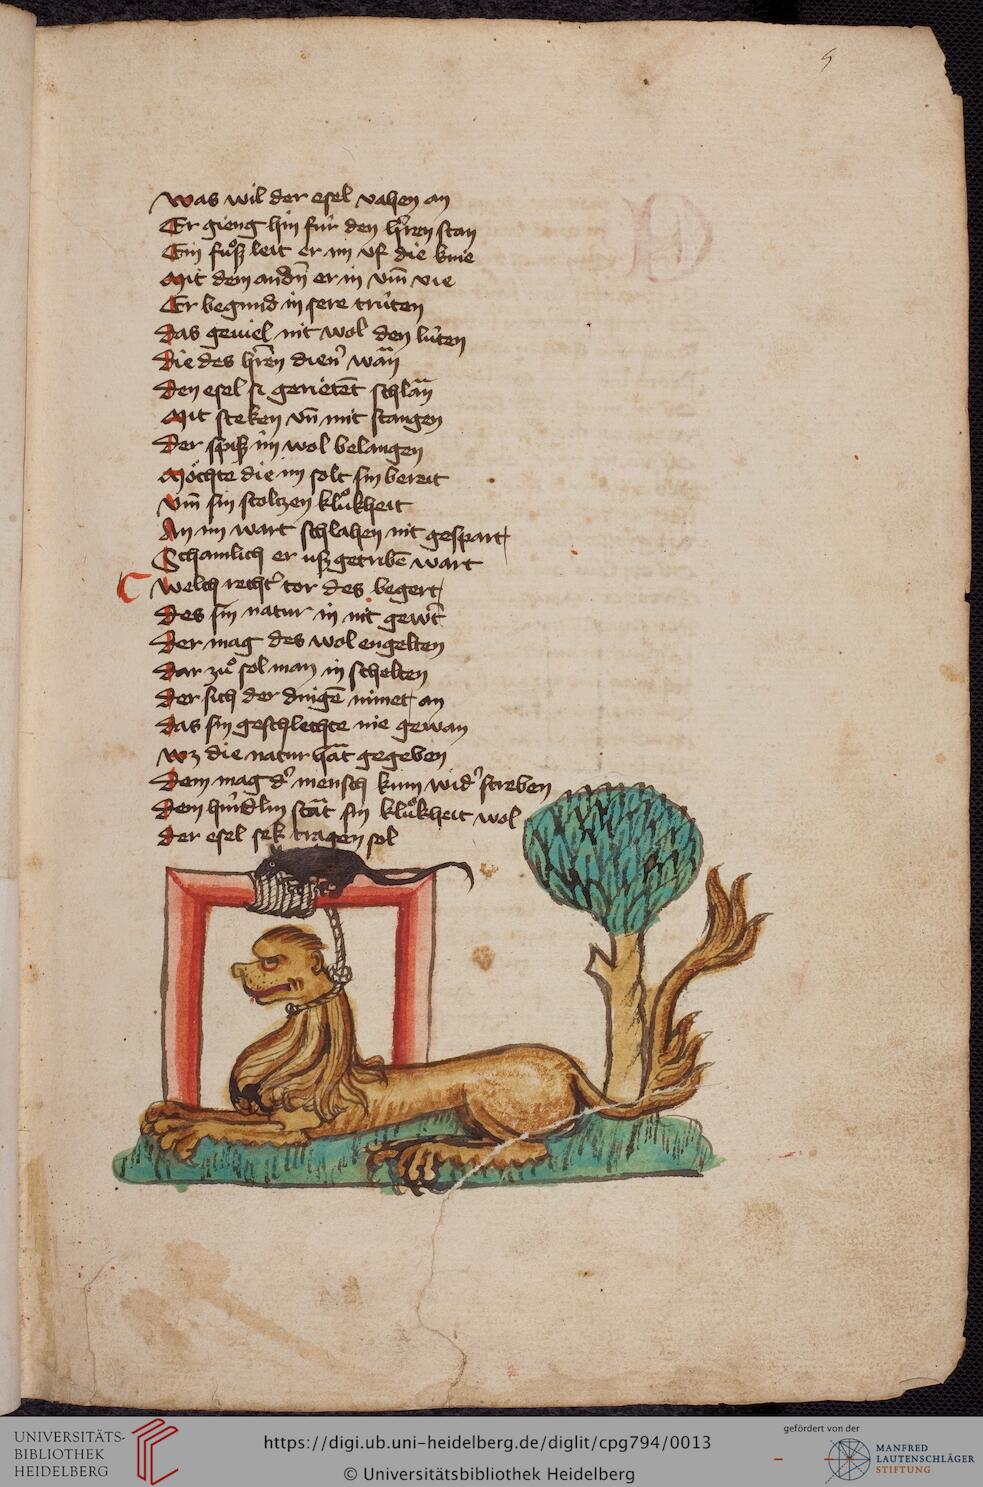 5
was wil der esel vahen an
Er gieng hin für den h̄ren stan
Ein fuͦß leit er im vf die knie
Mit dem andn̄ er in vm̄ vie
Er begund in sere trüten
das geuiel nit wol den lüten
die des h̄ren dien' wān
Den esel si gerietēt schlān
Mit steken vn̄ mit stangen
Der spiß im wol belangen
Möchte die im solt sin bereit
vm̄ sin stoltzen kluͦkheit
An im wart schlahen nit gespart
Schamlich er usß getribē wart
welch recht' tor des begert
des sin natur in nit gewt̄
der mag des wol engelten
dar zuͦ sol man in schelten
der sich der dingē nimet an
das sin geschlechte nie gewan
wz die natur hāt gegeben
Dem mag d' mensch kum wid' streben
dem hündlin stāt sin kluͦkheit wol
der esel sek tragen sol
UNIVERSITÄTS-
BIBLIOTHEK
HEIDELBERG
https://digi.ub.uni-heidelberg.de/diglit/cpg794/0013
© Universitätsbibliothek Heidelberg
gefördert von der
MANFRED
LAUTENSCHLÄGER
STIFTUNG